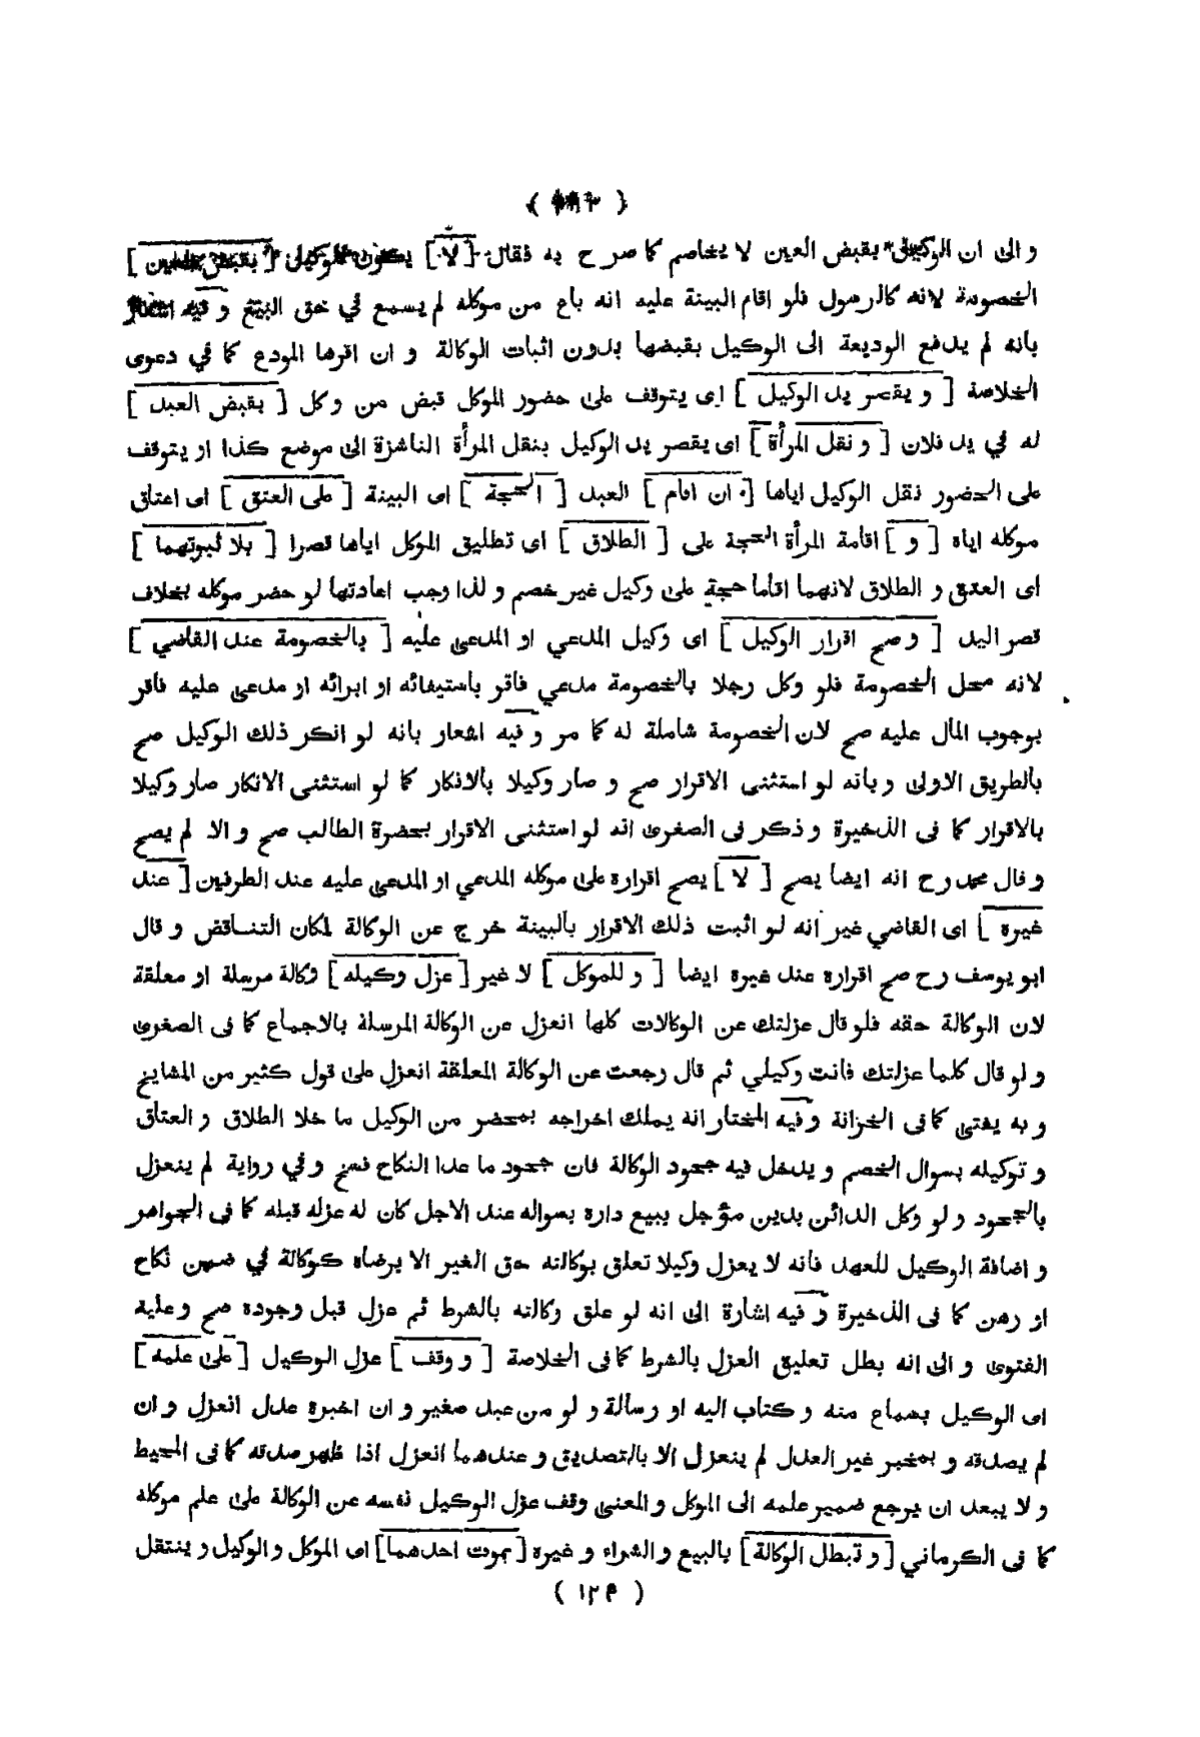 و الى ان الوكيل بقبض العين لا يخاصم كما صرح به فقال [ لا ] يكون للوكيل [ بقبض العين ]
الخصومة لانه كالرسول فلو اقام البينة عليه انه باع من موكله لم يسمع في حق البيع و فيه اشعار
بانه لم يدفع الوديعة الى الوكيل بقبضها بدون اثبات الوكالة و ان اقرها المودع كما في دعوى
الخلاصة [ و يقصر يد الوكيل ] اى يتوقف على حضور الموكل قبض من وكل [ بقبض العبد ]
له في يد فلان [ و نقل المرأة ] اى يقصر يد الوكيل بنقل المرأة الناشزة الى موضع كذا او يتوقف
على الحضور نقل الوكيل اياها [ ان اقام ] العبد [ الحجة ] اى البينة [ على العتق ] اى اعتاق
موكله اياه [ و ] اقامة المرأة الحجة على [ الطلاق ] اى تطليق الموكل اياها قصرا [ بلا ثبوتهما ]
اى العتق و الطلاق لانهما اقاما حجة على وكيل غير خصم و لذا وجب اعادتها لو حضر موكله بخلاف
قصر اليد [ و صح اقرار الوكيل ] اى وكيل المدعي او المدعى عليه [ بالخصومة عند القاضي ]
لانه محل الخصومة فلو وكل رجلا بالخصومة مدعي فاقر باستيفائه او ابرائه او مدعى عليه فاقر
بوجوب المال عليه صح لان الخصومة شاملة له كما مر و فيه اشعار بانه لو انكر ذلك الوكيل صح
بالطريق الاولى و بانه لو استثنى الاقرار صح و صار وكيلا بالانكار كما لو استثنى الانكار صار وكيلا
بالاقرار كما فى الذخيرة و ذكر فى الصغرى انه لو استثنى الاقرار بحضرة الطالب صح و الا لم يصح
و قال محمد رح انه ايضا يصح [ لا ] يصح اقراره على موكله المدعي او المدعى عليه عند الطرفين [ عند
غيره ] اى القاضي غير انه لو اثبت ذلك الاقرار بالبينة خرج عن الوكالة لمكان التناقض و قال
ابو يوسف رح صح اقراره عند غيره ايضا [ و للموكل ] لا غير [ عزل وكيله ] وكالة مرسلة او معلقة
لان الوكالة حقه فلو قال عزلتك عن الوكالات كلها انعزل عن الوكالة المرسلة بالاجماع كما فى الصغرى
و لو قال كلما عزلتك فانت وكيلي ثم قال رجعت عن الوكالة المعلقة انعزل على قول كثير من المشايخ
و به يفتى كما فى الخزانة و فيه المختار انه يملك اخراجه بمحضر من الوكيل ما خلا الطلاق و العتاق
و توكيله بسوال الخصم و يدخل فيه جحود الوكالة فان جحود ما عدا النكاح فسخ و في رواية لم ينعزل
بالجحود و لو وكل الدائن بدين مؤجل ببيع داره بسواله عند الاجل كان له عزله قبله كما فى الجواهر
و اضافة الوكيل للعهد فانه لا يعزل وكيلا تعلق بوكالته حق الغير الا برضاه كوكالة في ضمن نكاح
او رهن كما فى الذخيرة و فيه اشارة الى انه لو علق وكالته بالشرط ثم عزل قبل وجوده صح و عليه
الفتوى و الى انه بطل تعليق العزل بالشرط كما فى الخلاصة [ و وقف ] عزل الوكيل [ على علمه ]
اى الوكيل بسماع منه و كتاب اليه او رسالة و لو من عبد صغير و ان اخبره عدل انعزل و ان
لم يصدقه و بمخبر غير العدل لم ينعزل الا بالتصديق و عندهما انعزل اذا ظهر صدقه كما فى المحيط
و لا يبعد ان يرجع ضمير علمه الى الموكل و المعنى وقف عزل الوكيل نفسه عن الوكالة على علم موكله
كما فى الكرماني [ و تبطل الوكالة ] بالبيع و الشراء و غيره [ بموت احدهما ] اى الموكل و الوكيل و ينتقل
( ١٢٩ )